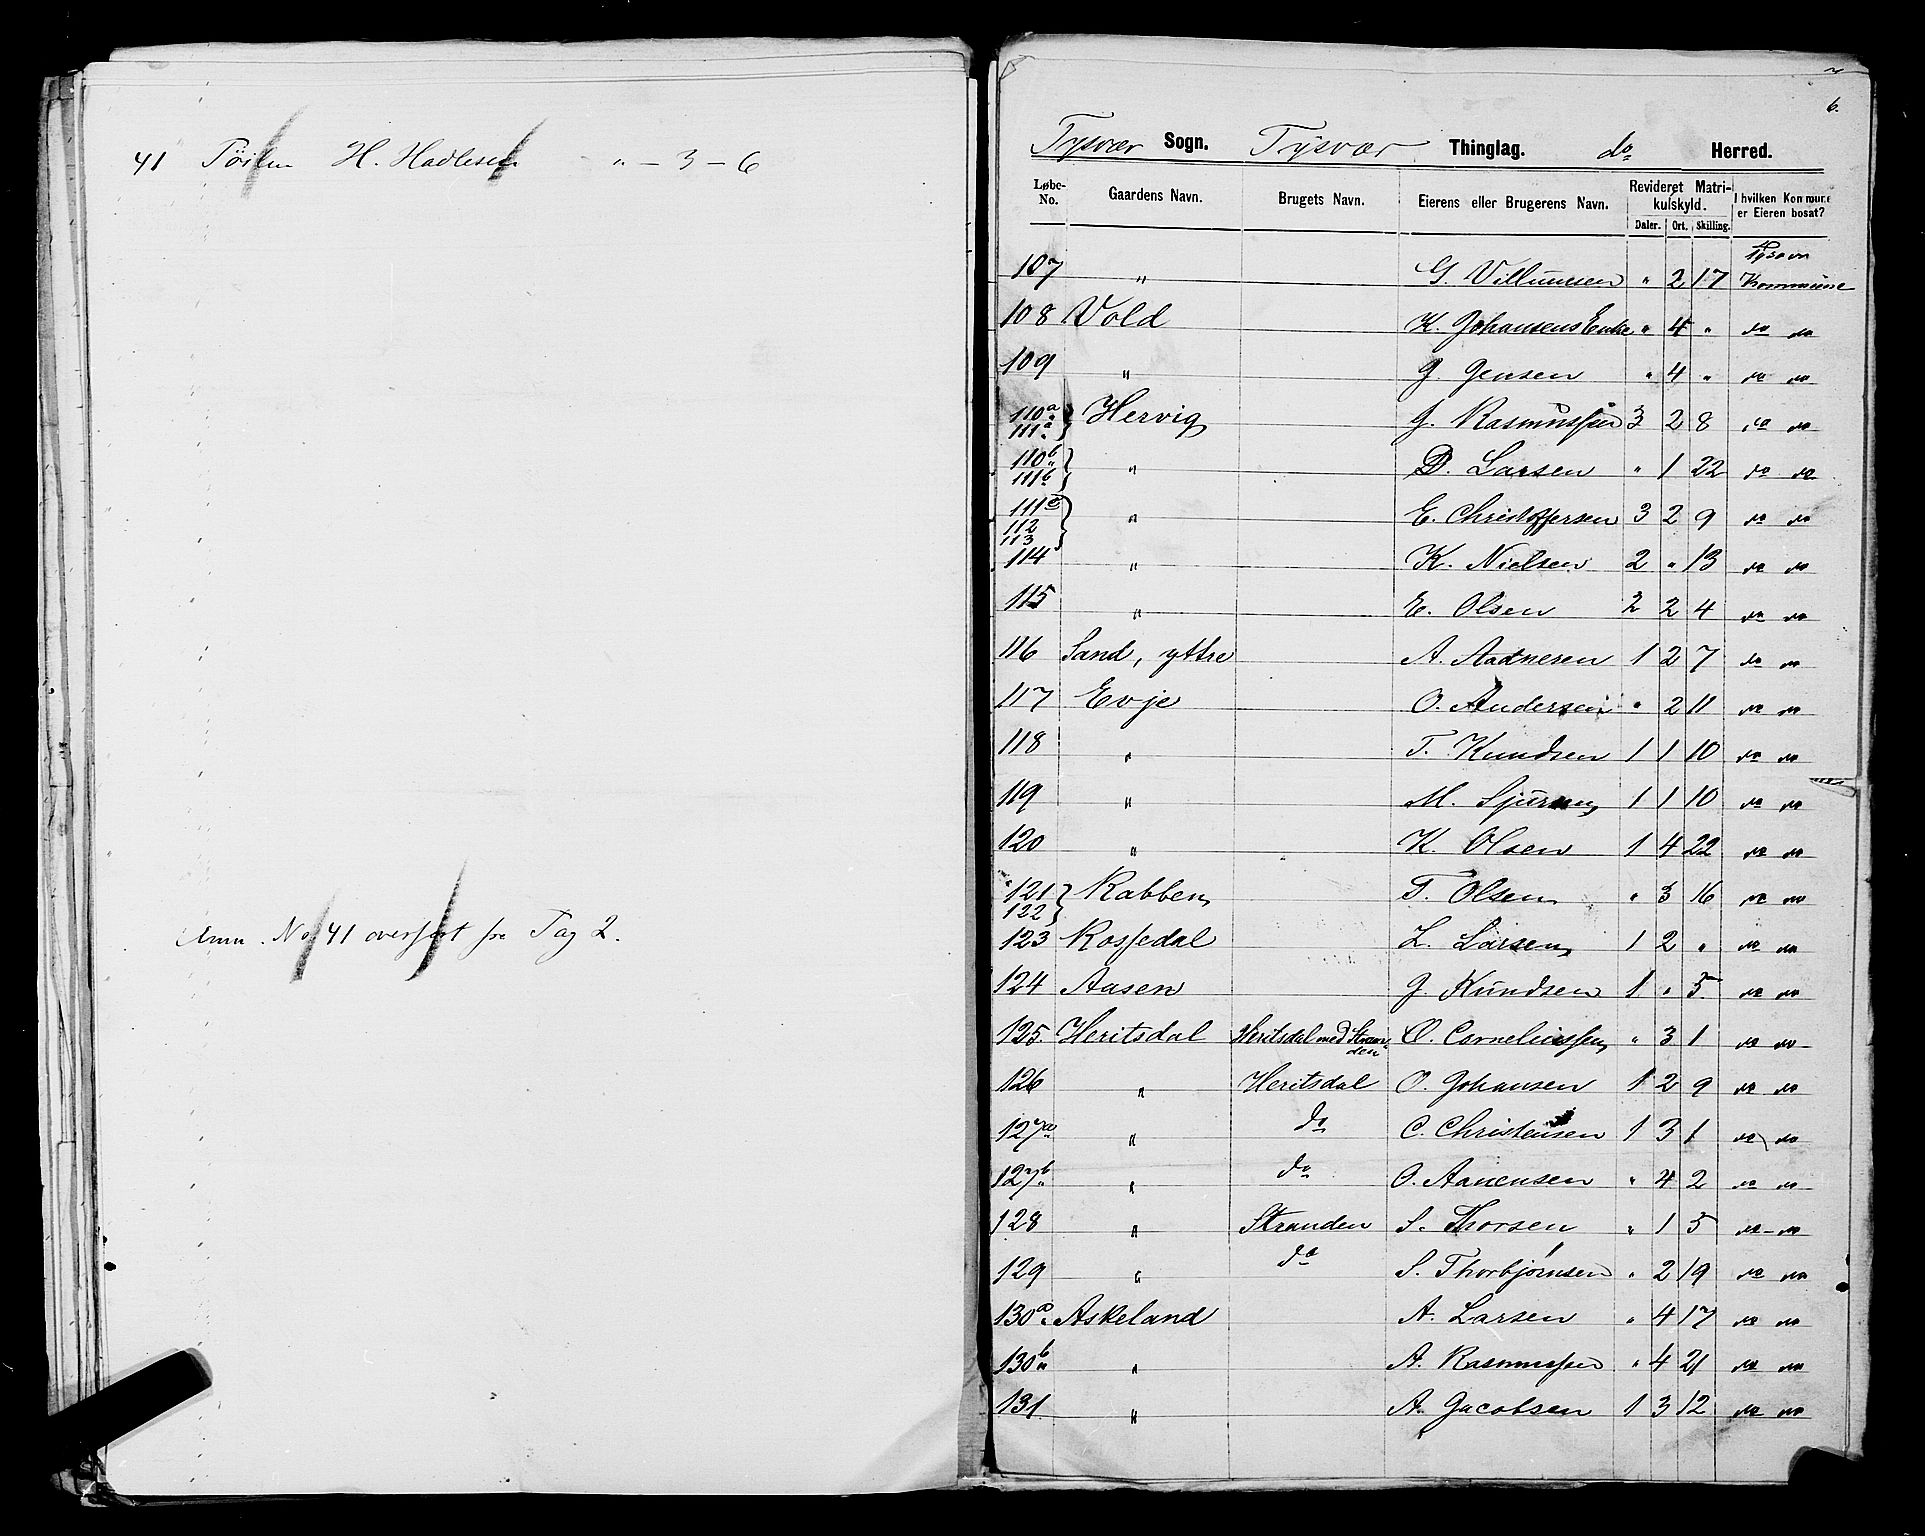 41 H. Hadlesen " – 3 – 6
Anm. No 41 overført fra Pag 2.
6.
Tysvær Sogn. Tysvær Thinglag. do Herred.
Løbe-No. Gaardens Navn. Brugets Navn. Eierens eller Brugerens Navn. Revideret Matrikulskyld. Daler. Ort. Skilling. I hvilken Kommune er Eieren bosat?
107 " G. Villumsen " 2 17 Kommune
108 Vold K. Johansens Enke " 4 " do do
109 " G. Jensen " 4 " do do
110a 111a } Hervig J. Rasmussen 3 2 8 do do
110b 111b } " D. Larsen " 1 22 do do
111c 112 113 } " E. Christoffersen 3 2 9 do do
114 " K. Nielsen 2 " 13 do do
115 " E. Olsen 2 2 4 do do
116 Sand, yttre A. Aadnesen 1 2 7 do do
117 Evje O. Andersen " 2 11 do do
118 " T. Knudsen 1 1 10 do do
119 " M. Sjursen 1 1 10 do do
120 " K. Olsen 1 4 22 do do
121 122 } Rabben T. Olsen " 3 16 do do
123 Rossedal L. Larsen 1 2 " do do
124 Aasen J. Knudsen 1 " 5 do do
125. Heritsdal Heritsdal med Stranden O. Corneliussen " 3 1 do do
126 " Heritsdal O. Johansen 1 2 9 do do
127a " do C. Christensen 1 3 1 do do
127b " do O. Aanensen " 4 2 do do
128 " Stranden S. Thorsen " 1 5 do do
129 " do S. Thorbjørnsen " 2 19 do do
130a Askeland A. Larsen " 4 17 do do
130b " A. Rasmussen " 4 21 do do
131 " A. Jacobsen 1 3 12 do do